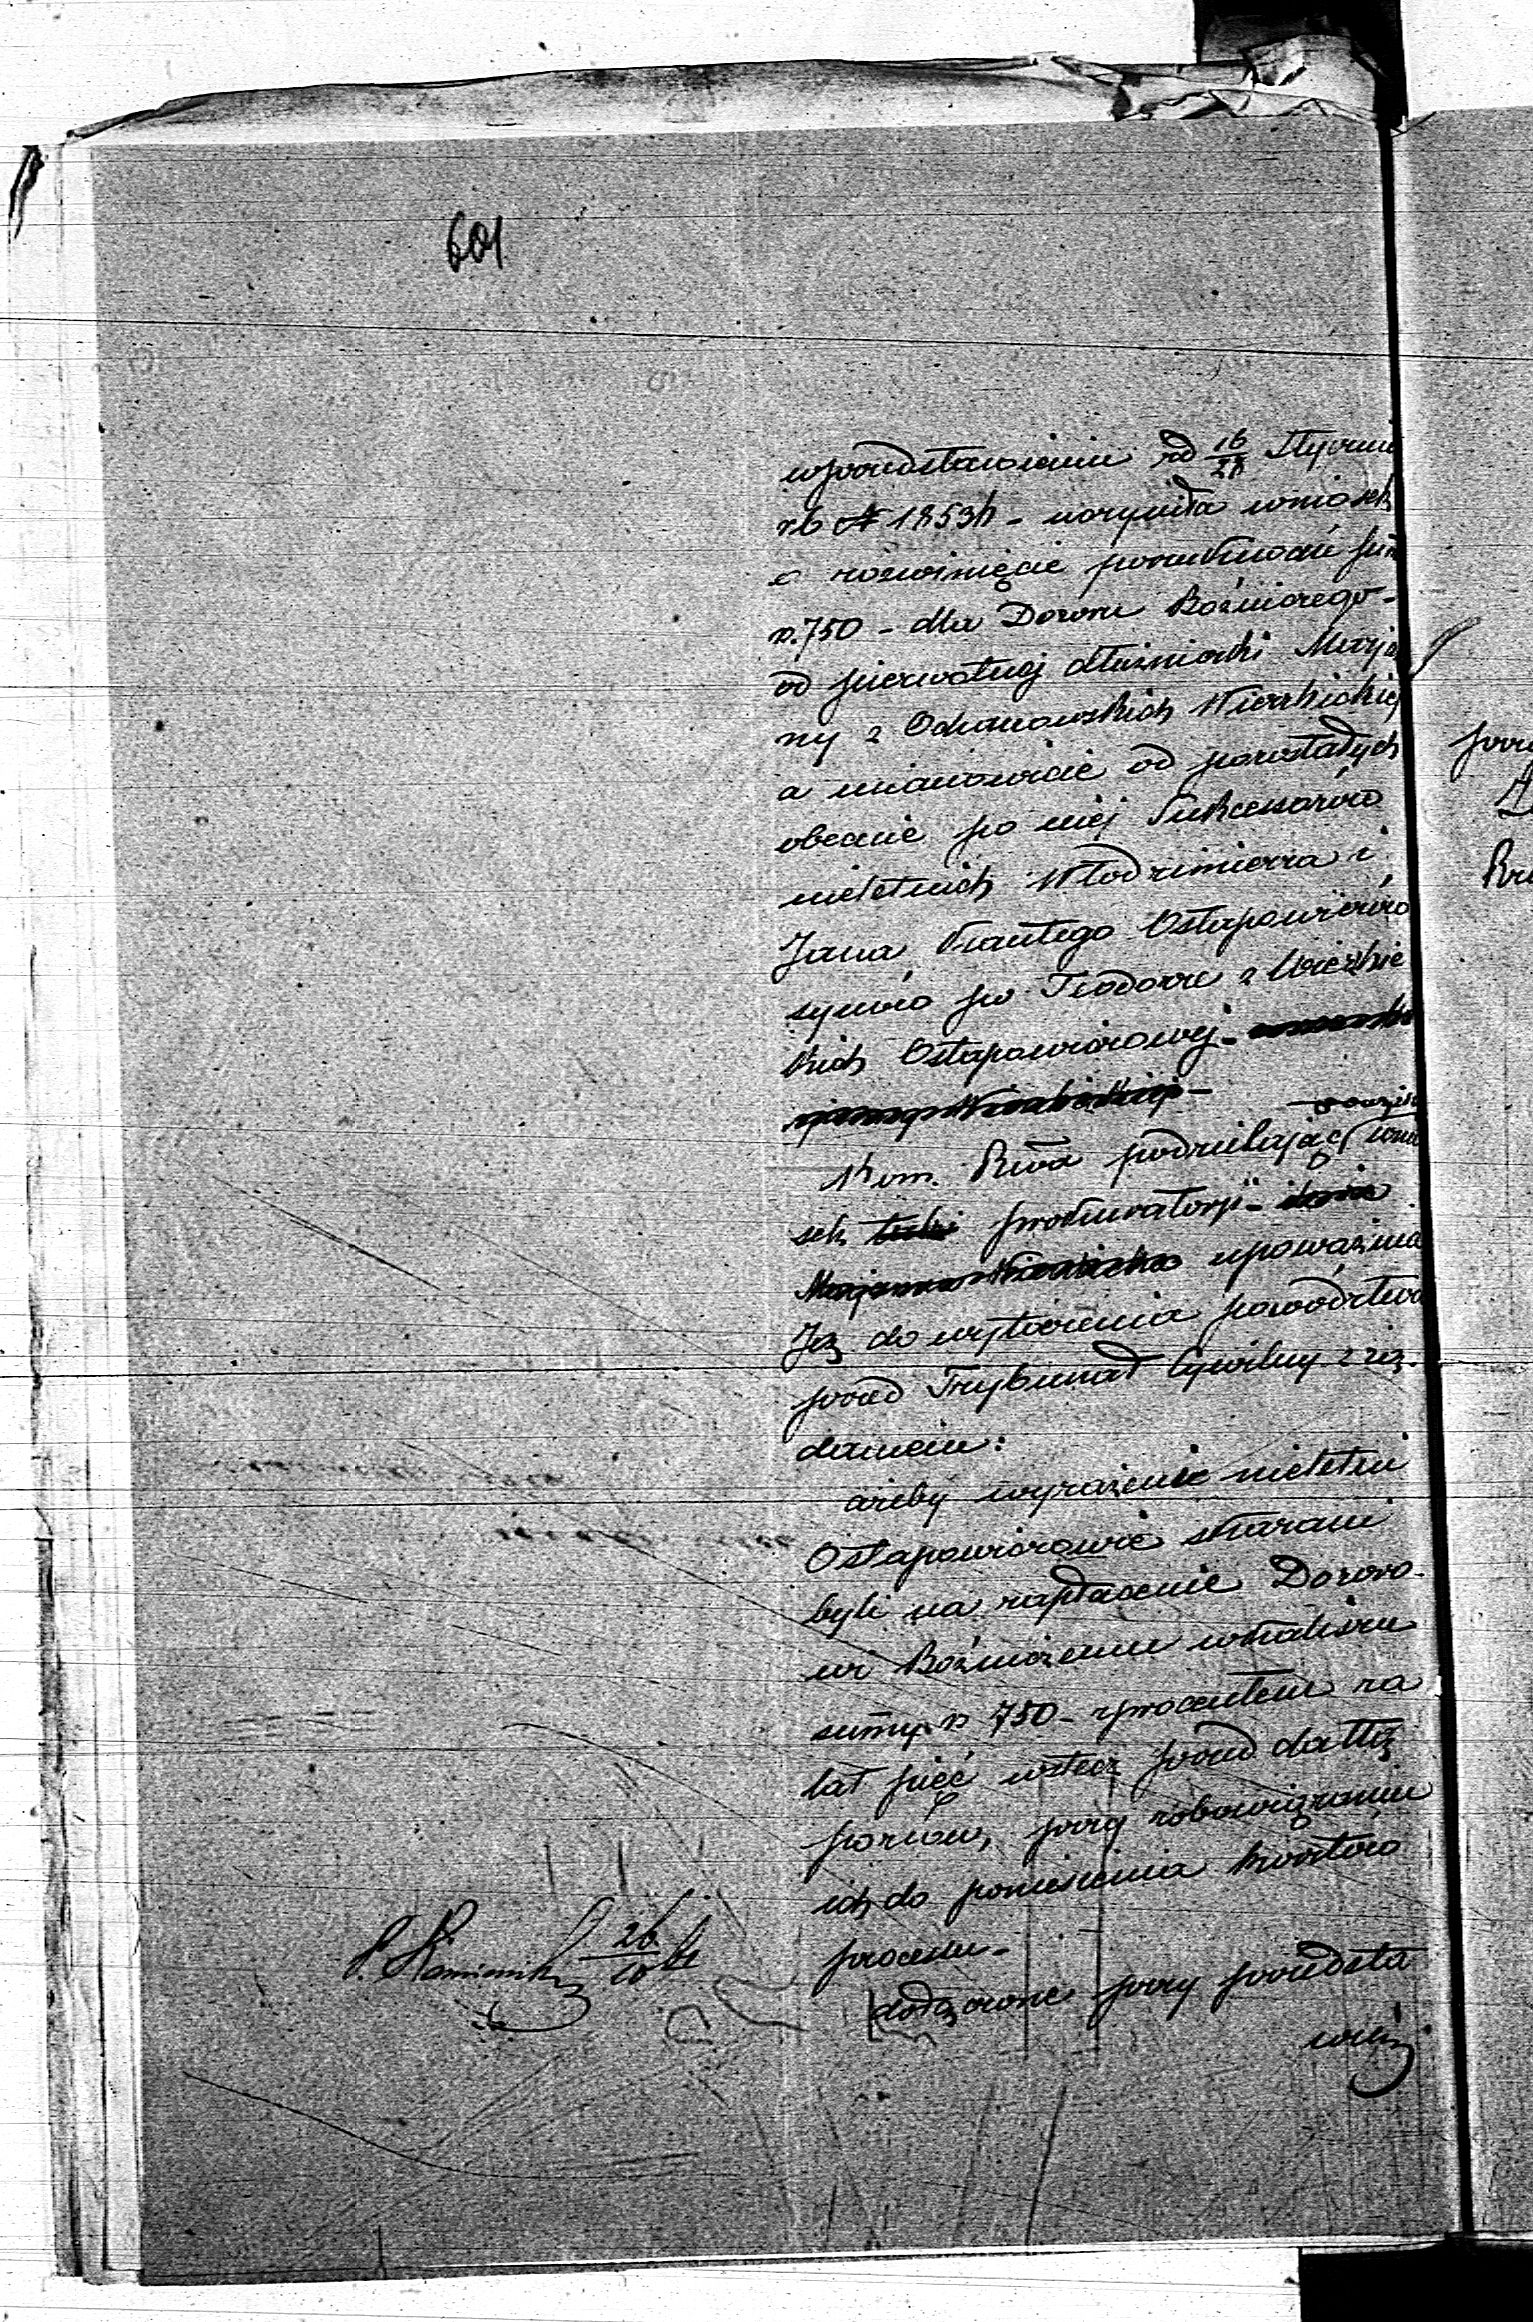 601
w przedstawieniu od 16/28 Stycznia
rb N 1853h - uczyniła wniosek
o rozwinięcie poszukiwań sum
rs. 750 - dla Dozoru Bóżniczego -
od pierwotnej dłużniczki Maryan
ny z Wierzbickiej
a mianowicie od pozostałych
obecnie po niej Sukcessorów
nieletnich Włodzimierza i
Jana Kantego Ostapowiczów
synów po Teodorze z Wierzbic
kich Ostapowiczowej -
Kom. Rząd podzielając wnio
sek prokuratoryi -
upoważnia
Ją do wytoczenia powództwa
przed Trybunał Cywilny z żą-
daniem:
ażeby wyrażeni nieletni
Ostapowiczowie skazani
byli na zapłacenie Dozoro-
wi Bóżniczemu w Kaliszu
sumy rs 750 - z procentem za
lat pięć wstecz przed datą
pozwu, przy zobowiązaniu
ich do poniesienia kosztów
procesu -
dołączone przy przedsta
wien
26/10